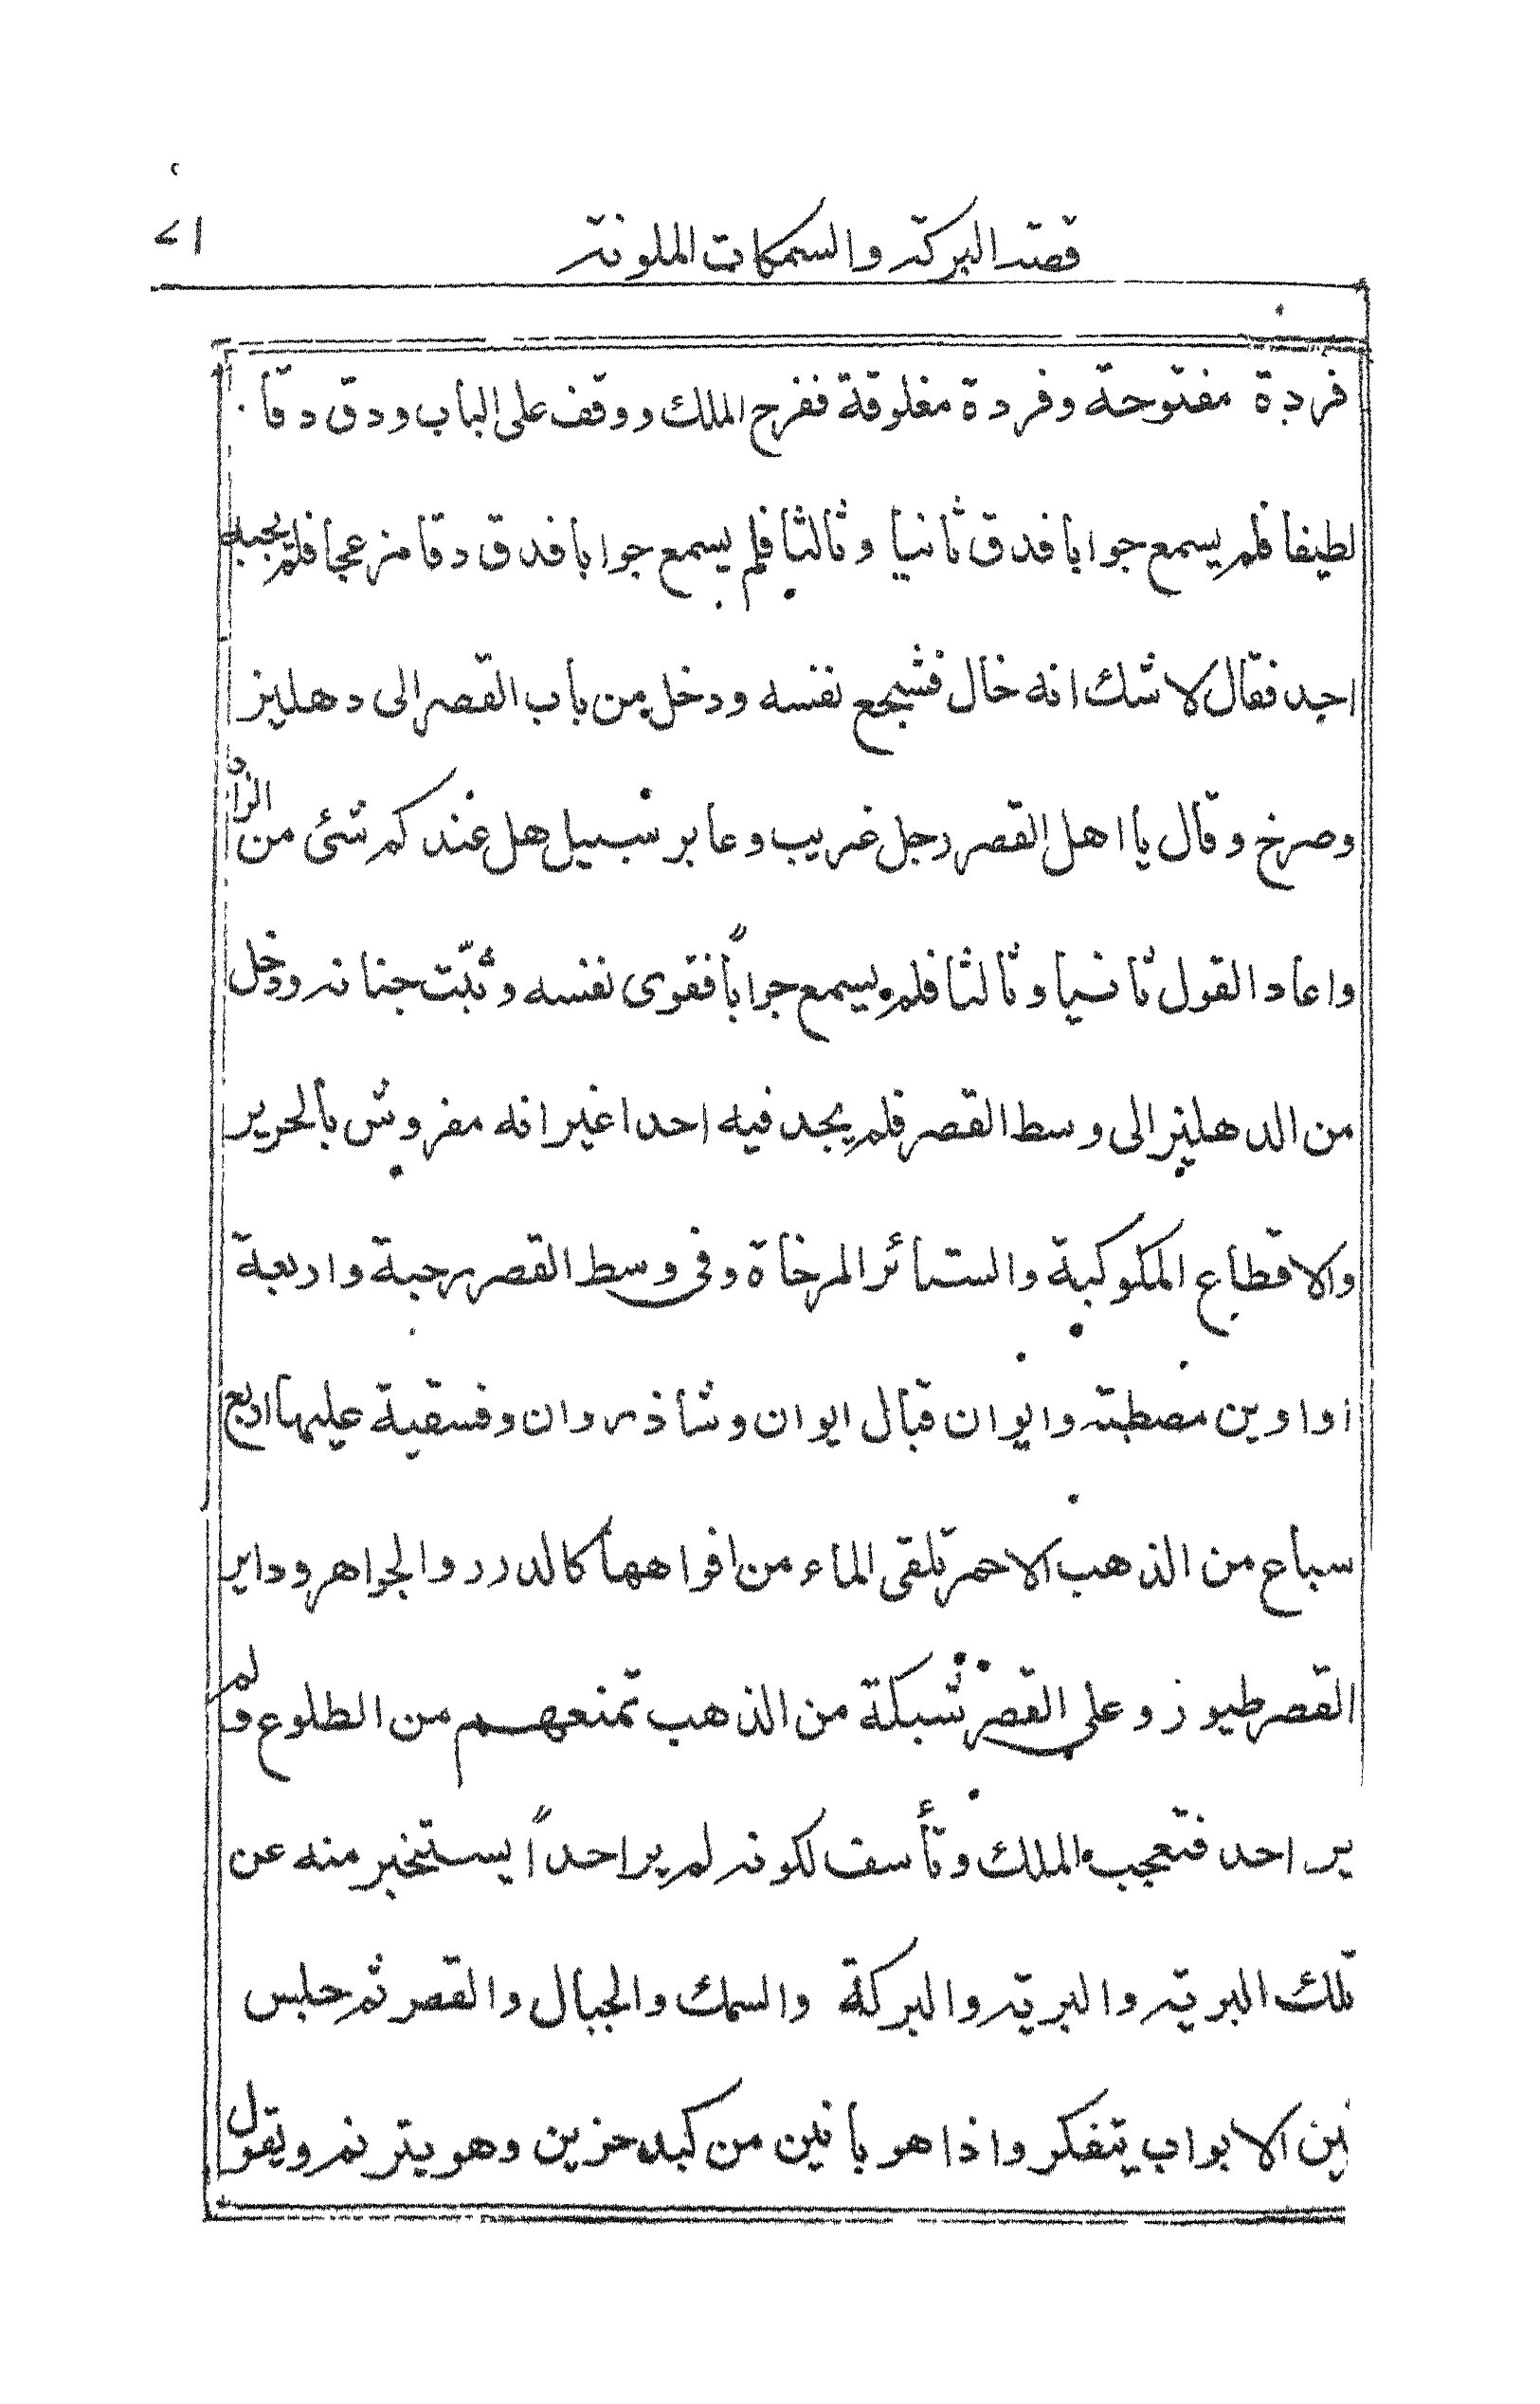 قصة البركة والسمكات الملونة
فردة مفتوحة وفردة مغلوقة ففرح الملك ووقف على الباب ودق دقا
لطيفا فلم يسمع جوابا فدق ثانيا وثالثا فلم يسمع جوابا فدق دقا مزعجا فلم يجبه
احد فقال لا شك انه خال فشجع نفسه ودخل من باب القصر الى دهليز
وصرخ وقال يا اهل القصر رجل غريب وعابر سبيل هل عندكم شئ من الزاد
واعاد القول ثانيا وثالثا فلم يسمع جواباً فقوى نفسه وثبّت جنانه ودخل
من الدهليز الى وسط القصر فلم يجد فيه احدا غير انه مفروش بالحرير
والاقطاع المكوكبة والستائر المرخاة وفى وسط القصر رحبة واربعة
اواوين مصطبة وايوان قبال ايوان وشاذروان وفسقية عليها اربع
سباع من الذهب الاحمر تلقى الماء من افواهها كالدرر والجواهر وداير
القصر طيور وعلى القصر شبكة من الذهب تمنعهم من الطلوع ولم
ير احد فتعجب الملك وتأسف لكونه لم ير احداً يستخبر منه عن
تلك البرية والبرية والبركة والسمك والجبال والقصر ثم جلس
بين الابواب يتفكر واذا هو بانين من كبد حزين وهو يترنم ويقول